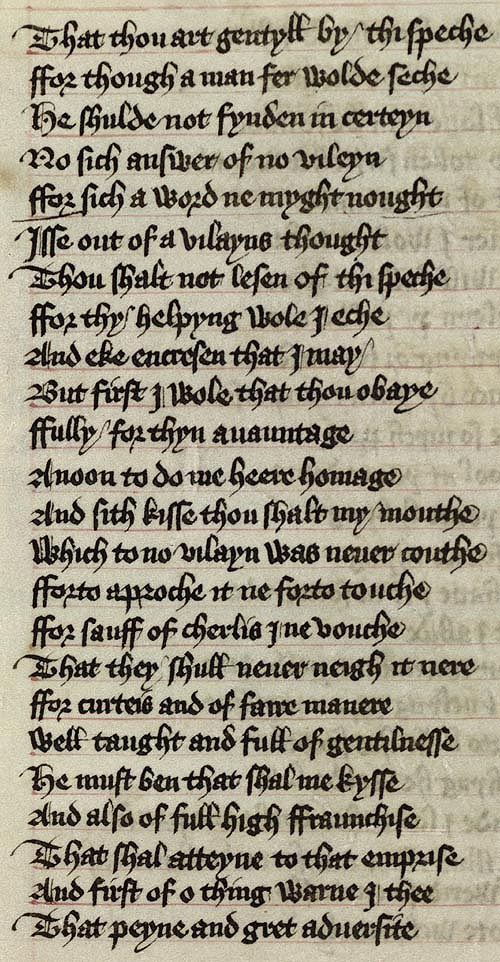 That thou art gentyll by thi speche
ffor though a man fer wolde seche
He shulde not fynden in certeyn
No sich answer of no vileyn
ffor sich a word ne myght nought
Isse out of a vilayns thought
Thou shalt not lesen of thi speche
ffor thy helpyng wole I eche
And eke encresen that I may
But first I wole that thou obaye
ffully for thyn auauntage
Anoon to do me heere homage
And sith kisse thou shalt my mouthe
Which to no vilayn was neuer couthe
fforto aproche it ne forto touche
ffor sauff of cherlis I ne vouche
That they shull neuer neigh it nere
ffor curteis and of faire manere
Well taught and full of gentilnesse
He must ben that shal me kysse
And also of full high ffraunchise
That shal atteyne to that emprise
And first of o thing warne I thee
That peyne and gret aduersite